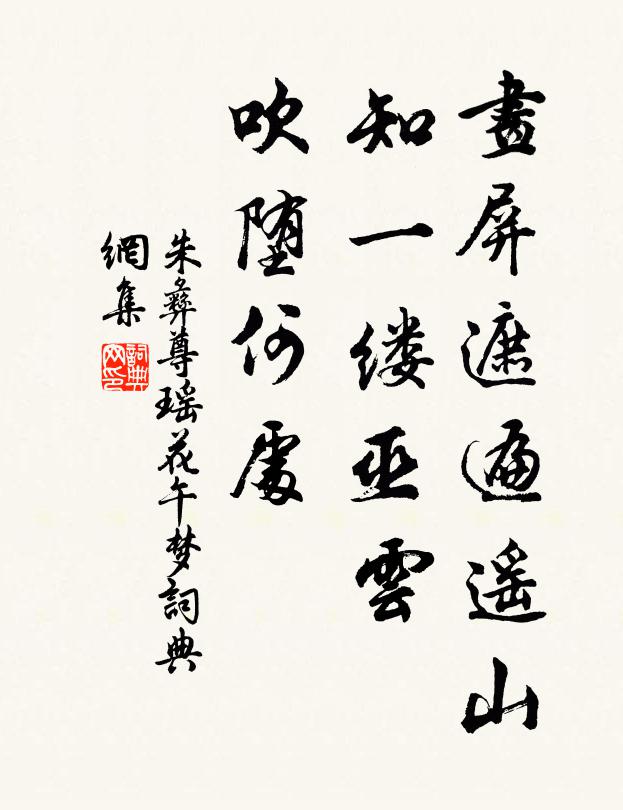 畫屏遮遍遥山
知一缕巫雲
吹堕何處
朱彝尊瑶花午梦詞典
網集
詞典
网印